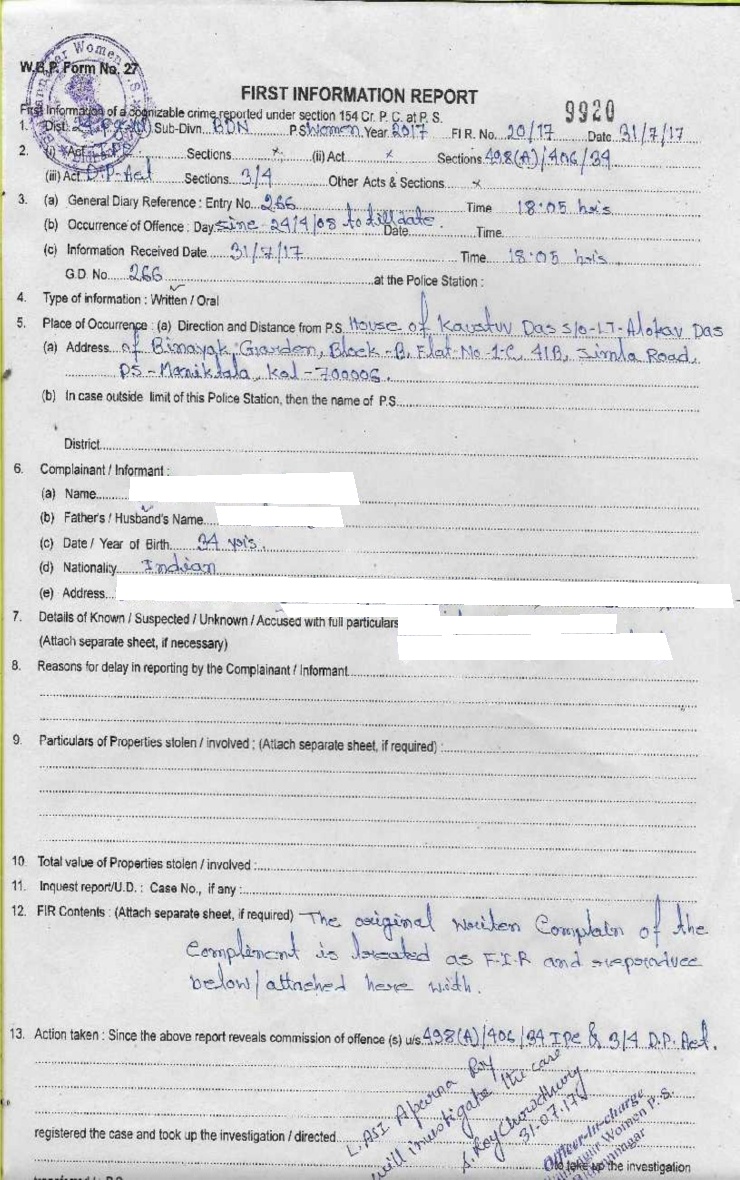 W.B.P. Form No. 27
FIRST INFORMATION REPORT
9920
First Information of a cognizable crime reported under section 154 Cr. P. C. at P. S.
1. Dist. Sub-Divn. BDN P.S Women Year 2017 FI R. No. 20/17 Date 31/7/17
2. (i) Act I.P.C Sections x (ii) Act x Sections 498(A)/406/34
(iii) Act D.P-Act Sections 3/4 Other Acts & Sections x
3. (a) General Diary Reference : Entry No. 266 Time 18:05 hrs
(b) Occurrence of Offence : Day since 24/4/08 to till date. Date Time
(c) Information Received Date 31/7/17 Time 18:05 hrs
G.D. No. 266 at the Police Station :
4. Type of information : Written / Oral
5. Place of Occurrence : (a) Direction and Distance from P.S. House of Kaustuv Das S/O-LT-Alokav Das
(a) Address of Binayak Garden, Block-B, Flat-No-1-C, 41B, Simla Road,
PS-Maniktala, Kol-700006.
(b) In case outside limit of this Police Station, then the name of P.S
District
6. Complainant / Informant :
(a) Name
(b) Father's / Husband's Name
(c) Date / Year of Birth 34 yrs.
(d) Nationality Indian
(e) Address
7. Details of Known / Suspected / Unknown / Accused with full particulars
(Attach separate sheet, if necessary)
8. Reasons for delay in reporting by the Complainant / Informant
9. Particulars of Properties stolen / involved : (Attach separate sheet, if required) :
10. Total value of Properties stolen / involved :
11. Inquest report/U.D. : Case No., if any :
12. FIR Contents : (Attach separate sheet, if required) The original writen Complain of the
Complinant is treated as F.I.R and reproduce
below/attached here with.
13. Action taken : Since the above report reveals commission of offence (s) u/s 498(A)/406/34 IPC & 3/4 D.P. Act.
L. ASI Aparna Roy
will investigate the case
S. RoyChowdhury
31.07.17
Officer-in-charge
Women P.S.
registered the case and took up the investigation / directed
to take up the investigation